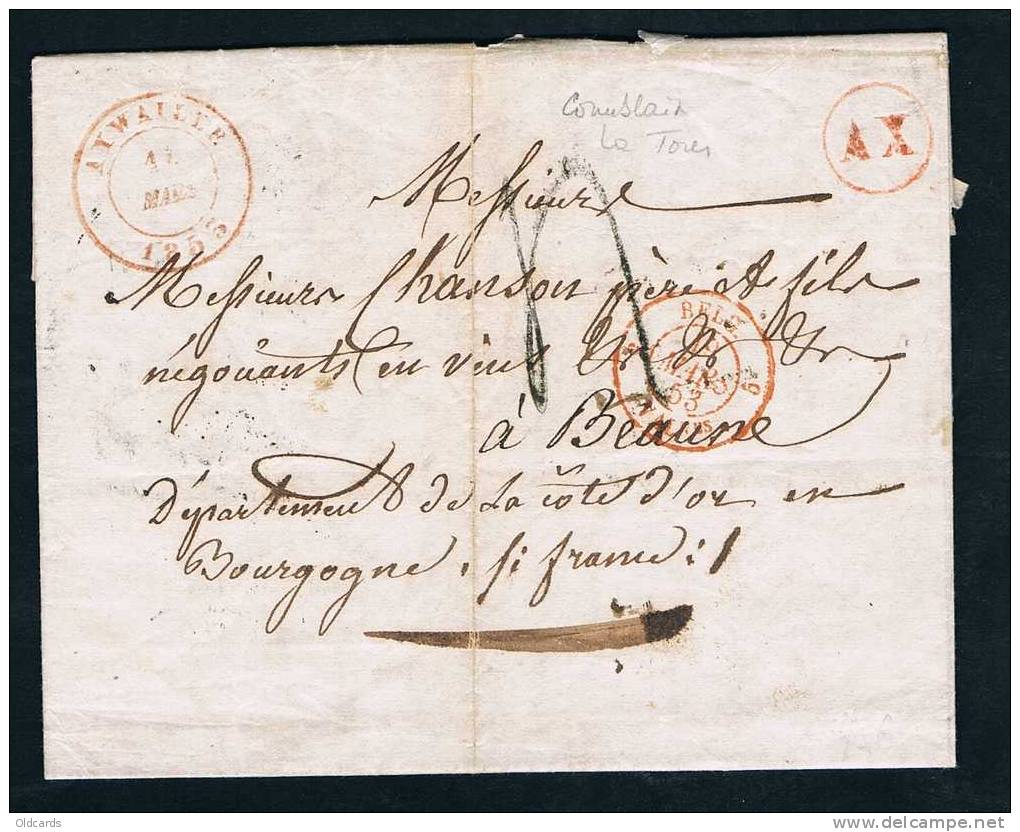 AYWAILLE
MARS
1853
AX
La
Messieurs
Messieurs Chanson père et fils
négociants en vins &r &r &r
BELG.
MARS
53
à Beaune
Département de la côte d'or en
Bourgogne, si france:/
Oldcards
delcampe.net